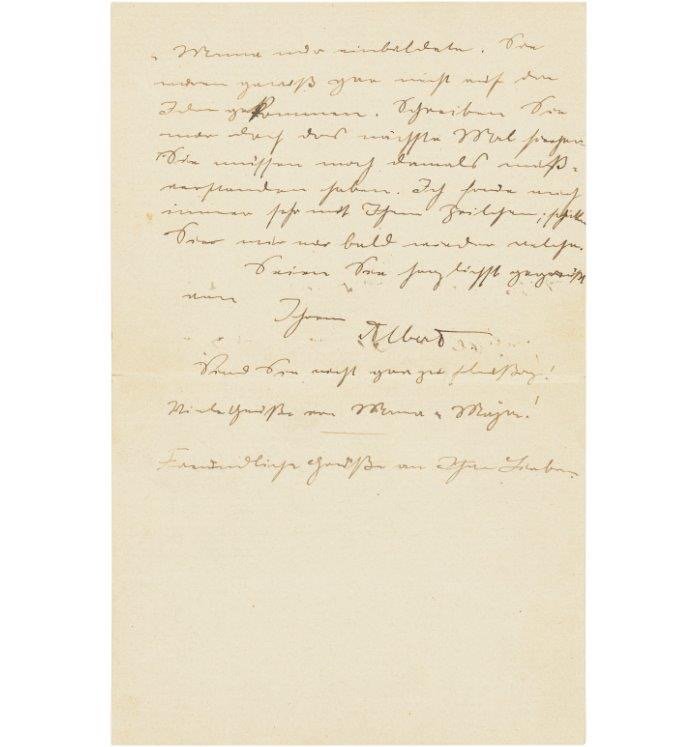 " Mama nur einbildete. Sie
wären gewiß gar nicht auf den
gekommen. Schreiben Sie
mir doch das nächste Mal
Sie müssen mich damals miß-
verstanden haben. Ich freue mich
immer sehr mit Ihren Zeilchen;
Sie mir nur bald wieder welche.
Seien Sie herzlichst gegrüßt
von
Ihrem
Albert
Sind Sie recht gar zu fleißig!
Viele Grüße von Mama u Maja!
Freundliche Grüße an Ihre Lieben